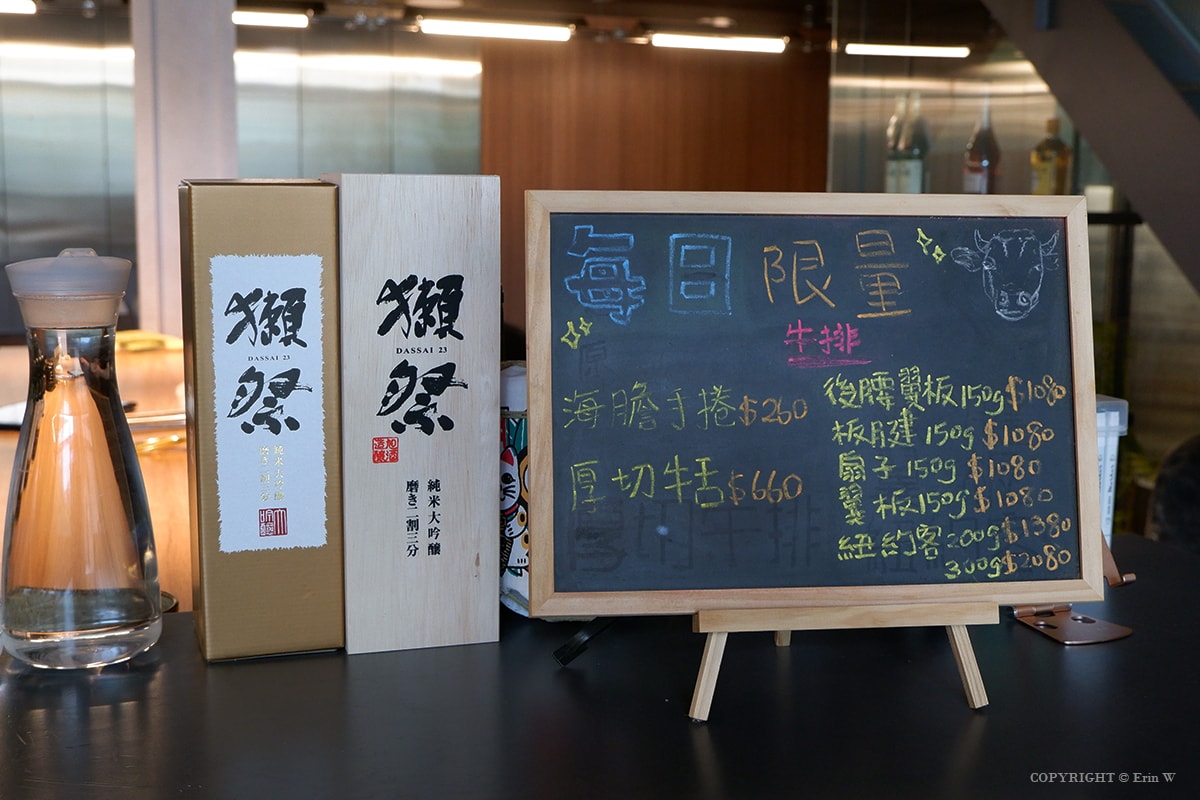 獺祭
DASSAI 23
純米大吟醸
磨き二割三分
獺祭
DASSAI 23
純米大吟醸
磨き二割三分
每日限量
海膽手捲$260
厚切牛舌$660
牛排
後腰翼板150g$1080
板腱150g$1080
扇子150g$1080
翼板150g$1080
紐約客200g$1380
300g$2080
COPYRIGHT © Erin W